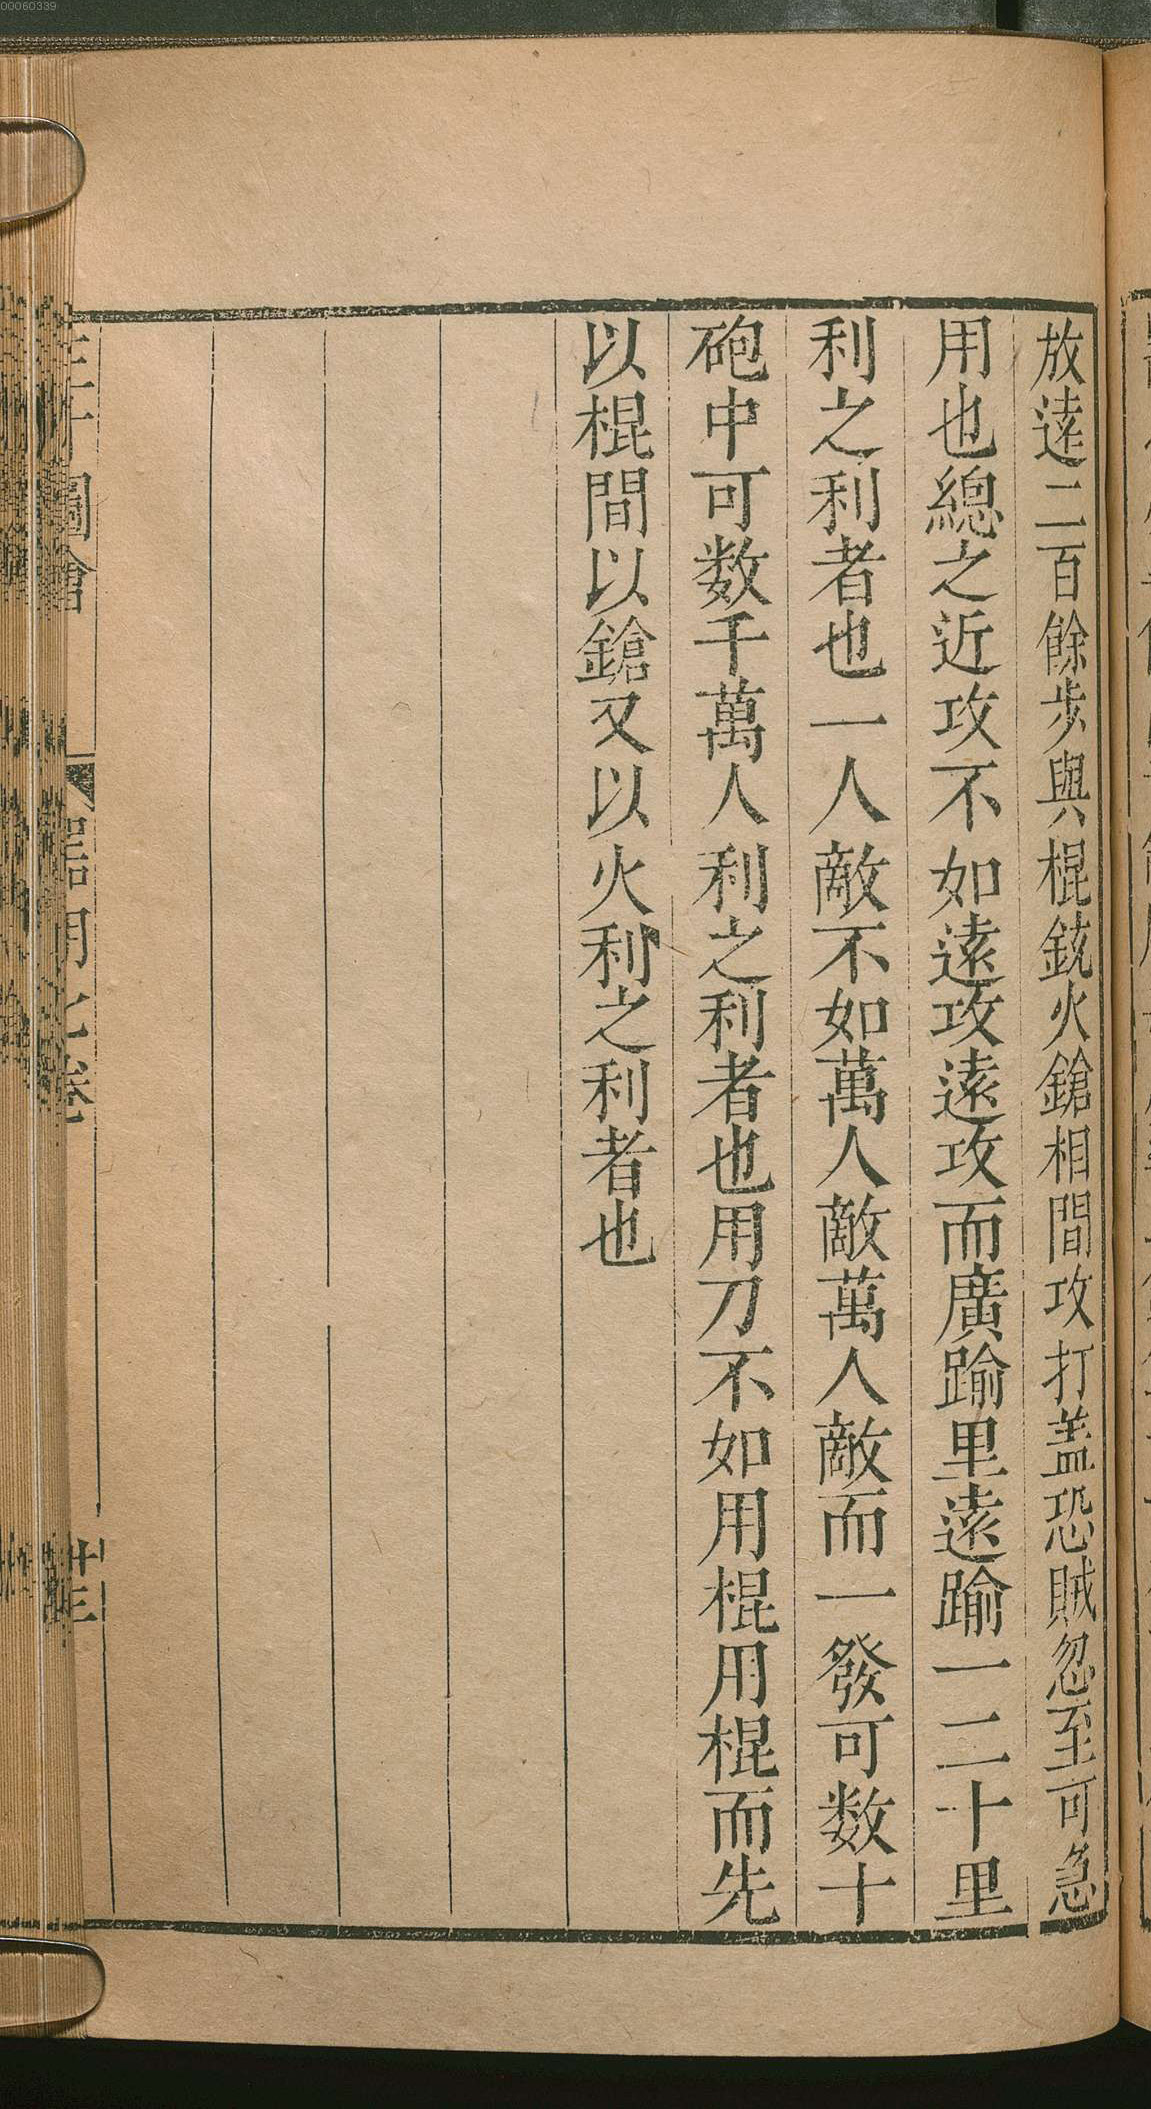 放遠二百餘步與棍銃火鎗相間攻打盖恐賊忽至可急
用也總之近攻不如遠攻遠攻而廣踰里遠踰一二十里
利之利者也一人敵不如萬人敵萬人敵而一發可数十
砲中可数千萬人利之利者也用刀不如用棍用棍而先
以棍間以鎗又以火利之利者也
00060339